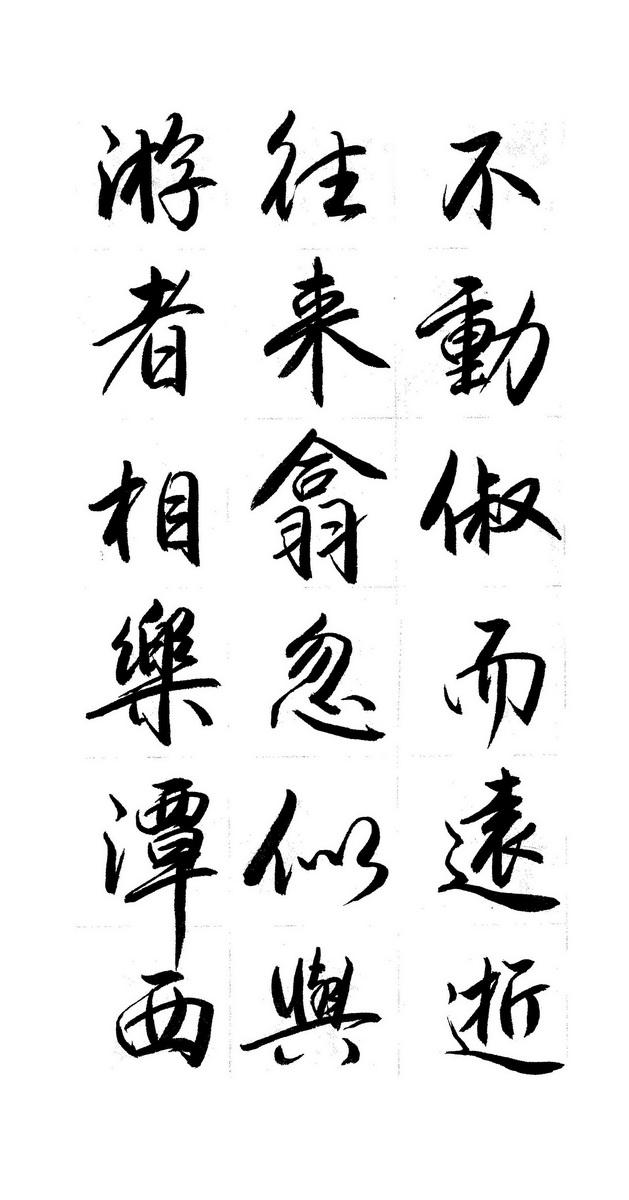 不動俶而遠逝
往来翕忽似與
游者相樂潭西